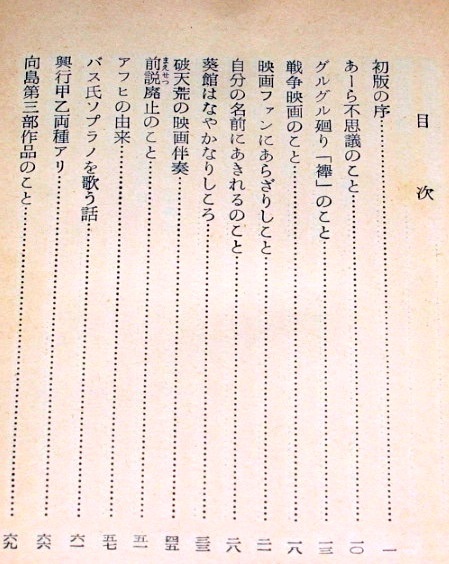 目次
初版の序……一
あーら不思議のこと……一〇
グルグル廻り「褌」のこと……一三
戦争映画のこと……一八
映画ファンにあらざりしこと……二一
自分の名前にあきれるのこと……二八
葵館はなやかなりしころ……三三
破天荒の映画伴奏……四五
前説廃止のこと……五一
まえせつ
アフヒの由来……五七
バス氏ソプラノを歌う話……六一
興行甲乙両種アリ……六六
向島第三部作品のこと……六九